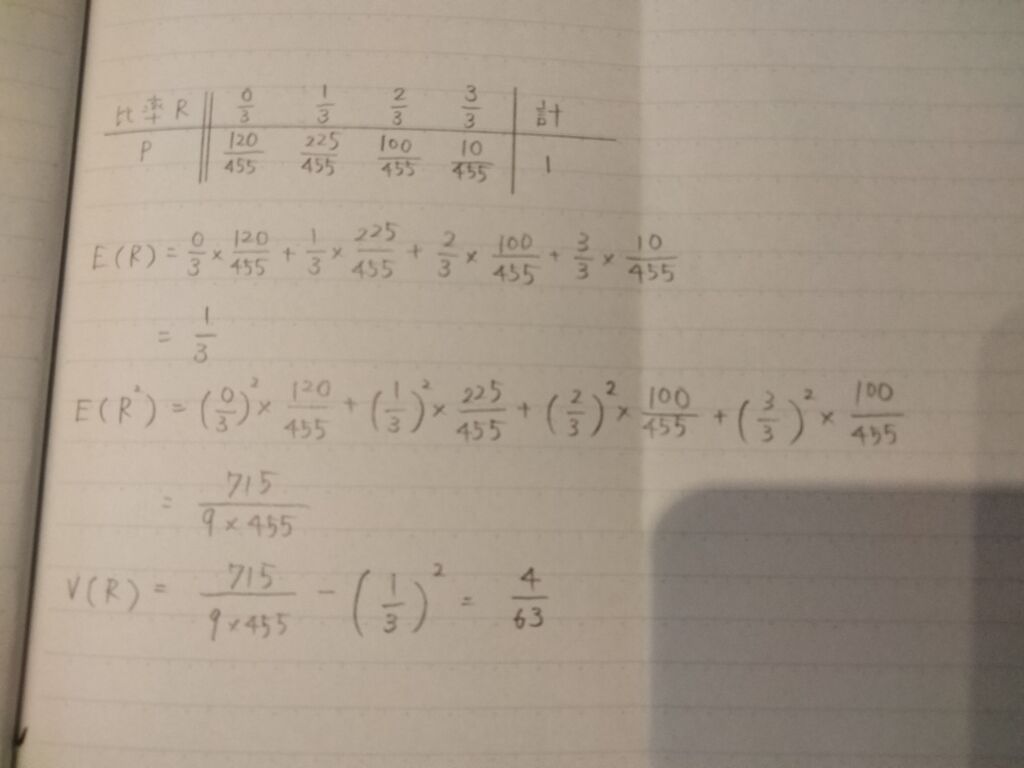 比率 R 0/3 1/3 2/3 3/3 計
P 120/455 225/455 100/455 10/455 1
E(R) = 0/3 × 120/455 + 1/3 × 225/455 + 2/3 × 100/455 + 3/3 × 10/455
= 1/3
E(R²) = (0/3)² × 120/455 + (1/3)² × 225/455 + (2/3)² × 100/455 + (3/3)² × 100/455
= 715/(9×455)
V(R) = 715/(9×455) - (1/3)² = 4/63